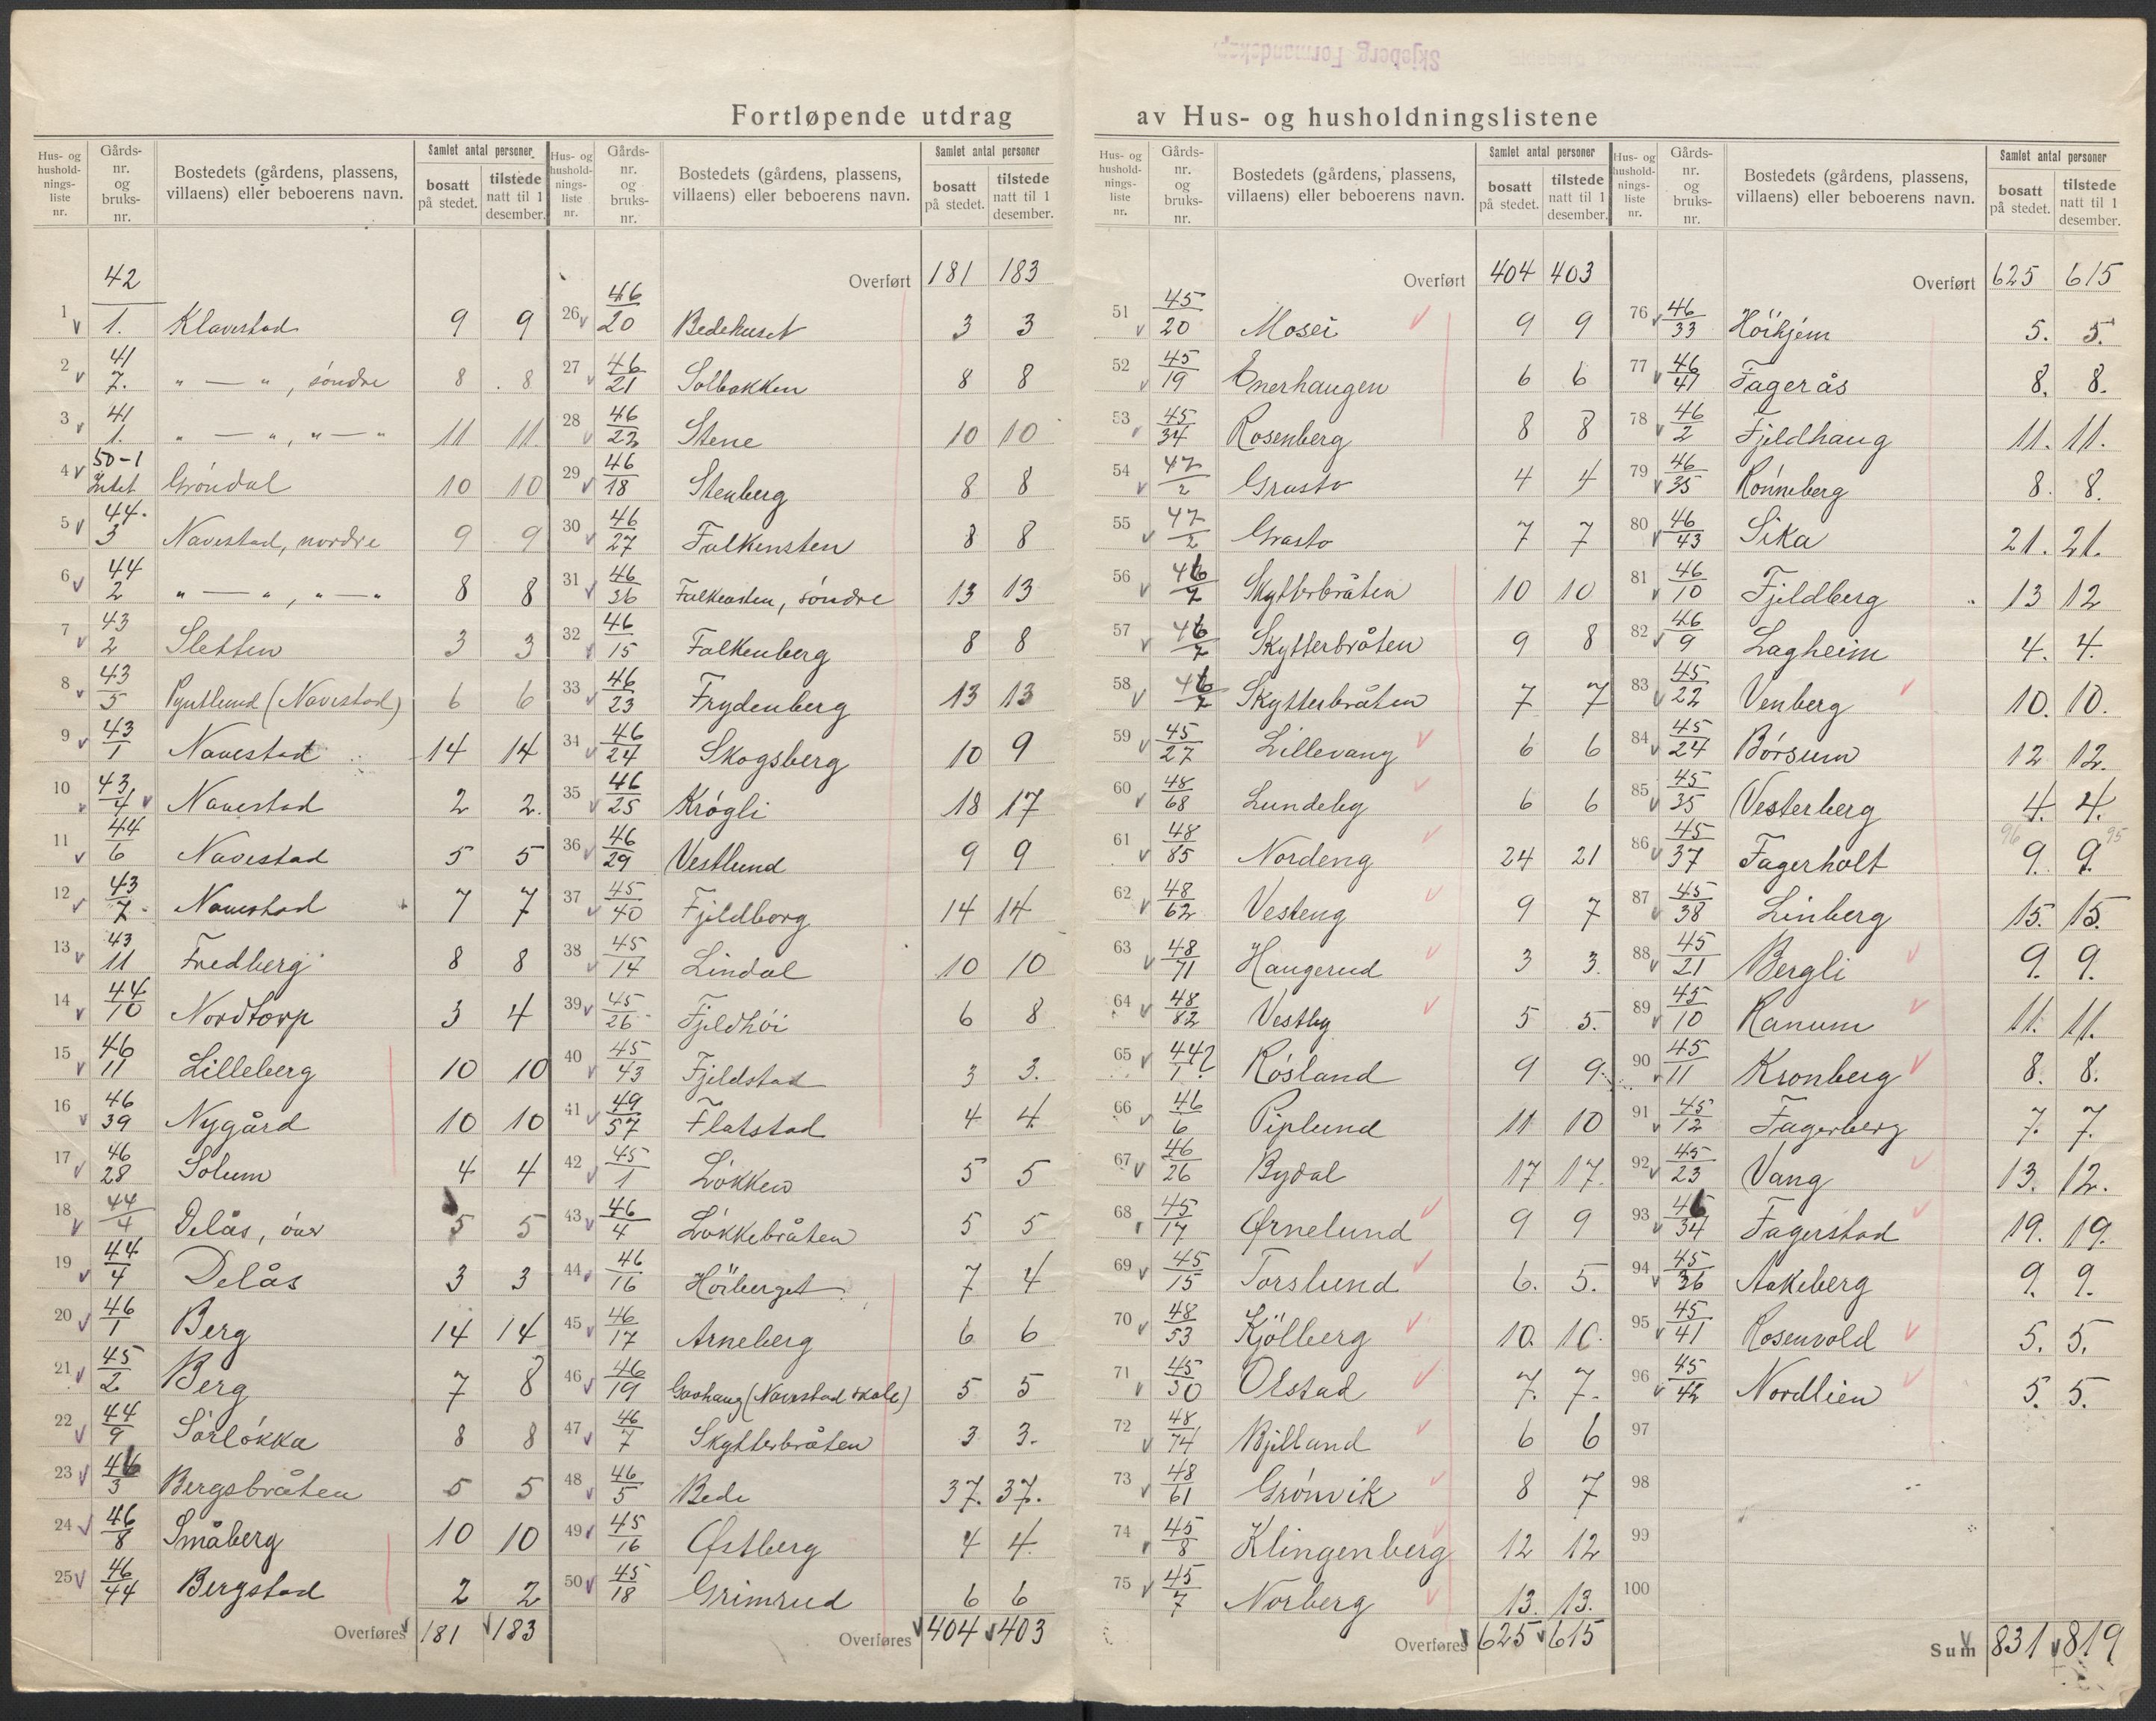 Skjeberg Formandskap.
Fortløpende utdrag av Hus- og husholdningslistene
Hus- og husholdnings- liste nr. | Gårds- nr. og bruks- nr. | Bostedets (gårdens, plassens, villaens) eller beboerens navn. | Samlet antal personer | bosatt på stedet. | tilstede natt til 1 desember.
1 42/1. Klavestad 9 9
2 41/7. " — ", söndre 8 8
3 41/1. " — ", " — " 11 11
4 50-1 Intet Gröndal 10 10
5 44/3 Navestad, nordre 9 9
6 44/2 " — ", " — " 8 8
7 43/2 Sletten 3 3
8 43/5 Pyntlund (Navestad) 6 6
9 43/1 Navestad 14 14
10 43/4 Navestad 2 2.
11 44/6 Navestad 5 5
12 43/7 Navestad 7 7
13 43/11 Fredberg 8 8
14 44/10 Nordtorp 3 4
15 46/11 Lilleberg 10 10
16 46/39 Nygård 10 10
17 46/28 Solum 4 4
18 44/4 Delås, över 5 5
19 44/4 Delås 3 3
20 46/1 Berg 14 14
21 45/2 Berg 7 8
22 44/9 Sörlökka 8 8
23 46/3 Bergsbråten 5 5
24 46/8 Småberg 10 10
25 46/44 Bergstad 2 2
Overføres 181 183
Hus- og husholdnings- liste nr. | Gårds- nr. og bruks- nr. | Bostedets (gårdens, plassens, villaens) eller beboerens navn. | Samlet antal personer | bosatt på stedet. | tilstede natt til 1 desember.
Overført 181 183
26 46/20 Bedehuset 3 3
27 46/21 Solbakken 8 8
28 46/22 Stene 10 10
29 46/18 Stenberg 8 8
30 46/27 Falkensten 8 8
31 46/36 Falkensten, söndre 13 13
32 46/15 Falkenberg 8 8
33 46/23 Frydenberg 13 13
34 46/24 Skogsberg 10 9
35 46/25 Krögli 18 17
36 46/29 Vestlund 9 9
37 45/40 Fjeldborg 14 14
38 45/14 Lindal 10 10
39 45/26 Fjeldhöi 6 8
40 45/43 Fjeldstad 3 3.
41 49/57 Flatstad 4 4.
42 45/1 Lökken 5 5
43 46/4 Lökkebråten 5 5
44 46/16 Höiberget 7 4
45 46/17 Arneberg 6 6
46 46/19 Gaahaug (Navestad skole) 5 5
47 46/7 Skytterbråten 3 3.
48 46/5 Bede 37. 37.
49 45/16 Østberg 4 4.
50 45/18 Grimrud 6 6
Overføres 404 403
Hus- og husholdnings- liste nr. | Gårds- nr. og bruks- nr. | Bostedets (gårdens, plassens, villaens) eller beboerens navn. | Samlet antal personer | bosatt på stedet. | tilstede natt til 1 desember.
Overført 404 403
51 45/20 Mosei 9 9
52 45/19 Enerhaugen 6 6
53 45/34 Rosenberg 8 8
54 47/2 Grasto 4 4
55 47/2 Grasto 7 7
56 46/7 Skytterbråten 10 10
57 46/7 Skytterbråten 9 8
58 46/7 Skytterbråten 7 7
59 45/27 Lillevang 6 6
60 48/68 Lundeby 6 6
61 48/85 Nordeng 24 21
62 48/62 Vesteng 9 7
63 48/71 Haugerud 3 3.
64 48/82 Vestby 5 5.
65 44?/1 Rösland 9 9.
66 46/6 Piplund 11 10
67 46/26 Bydal 17 17.
68 45/17 Ørnelund 9 9
69 45/15 Torslund 6. 5.
70 48/53 Kjölberg 10. 10.
71 45/30 Olstad 7. 7.
72 48/74 Bjelland 6 6
73 48/61 Grönvik 8 7
74 45/8 Klingenberg 12 12
75 45/7 Norberg 13. 13.
Overføres 625 615
Hus- og husholdnings- liste nr. | Gårds- nr. og bruks- nr. | Bostedets (gårdens, plassens, villaens) eller beboerens navn. | Samlet antal personer | bosatt på stedet. | tilstede natt til 1 desember.
Overført 625 615
76 46/33 Höihjem 5. 5.
77 46/41 Fagerås 8. 8.
78 46/2 Fjeldhaug 11. 11.
79 46/35 Rönneberg 8. 8.
80 46/43 Sika 21. 21.
81 46/10 Fjeldberg 13 12
82 46/9 Lagheim 4. 4.
83 45/22 Venberg 10. 10.
84 45/24 Börsum 12 12.
85 45/35 Vesterberg 4. 4.
96 95
86 45/37 Fagerholt 9. 9.
87 45/38 Linberg 15. 15.
88 45/21 Bergli 9. 9.
89 45/10 Ranum 11. 11.
90 45/11 Kronberg 8. 8.
91 45/12 Fagerberg 7. 7.
92 45/23 Vang 13. 12.
93 46/34 Fagerstad 19. 19.
94 45/36 Aakeberg 9. 9.
95 45/41 Rosenvold 5. 5.
96 45/42 Nordlien 5. 5.
97
98
99
100
Sum 831 819